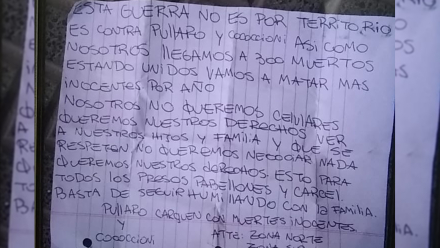 ESTA GUERRA NO ES POR TERRITORIO
ES CONTRA PULLARO Y COCOCCIONI ASI COMO
NOSOTROS LLEGAMOS A 300 MUERTOS
ESTANDO UNIDOS VAMOS A MATAR MAS
INOCENTES POR AÑO
NOSOTROS NO QUEREMOS CELULARES
QUEREMOS NUESTROS DERECHOS VER
A NUESTROS HIJOS Y FAMILIA Y QUE SE
RESPETEN NO QUEREMOS NEGOCIAR NADA
QUEREMOS NUESTROS DERECHOS ESTO PARA
TODOS LOS PRESOS PABELLONES Y CARCEL.
BASTA DE SEGUIR HUMILLANDO CON LA FAMILIA.
PULLARO CARGUEN CON MUERTES INOCENTES.
Y ATTE: ZONA NORTE
COCOCCIONI